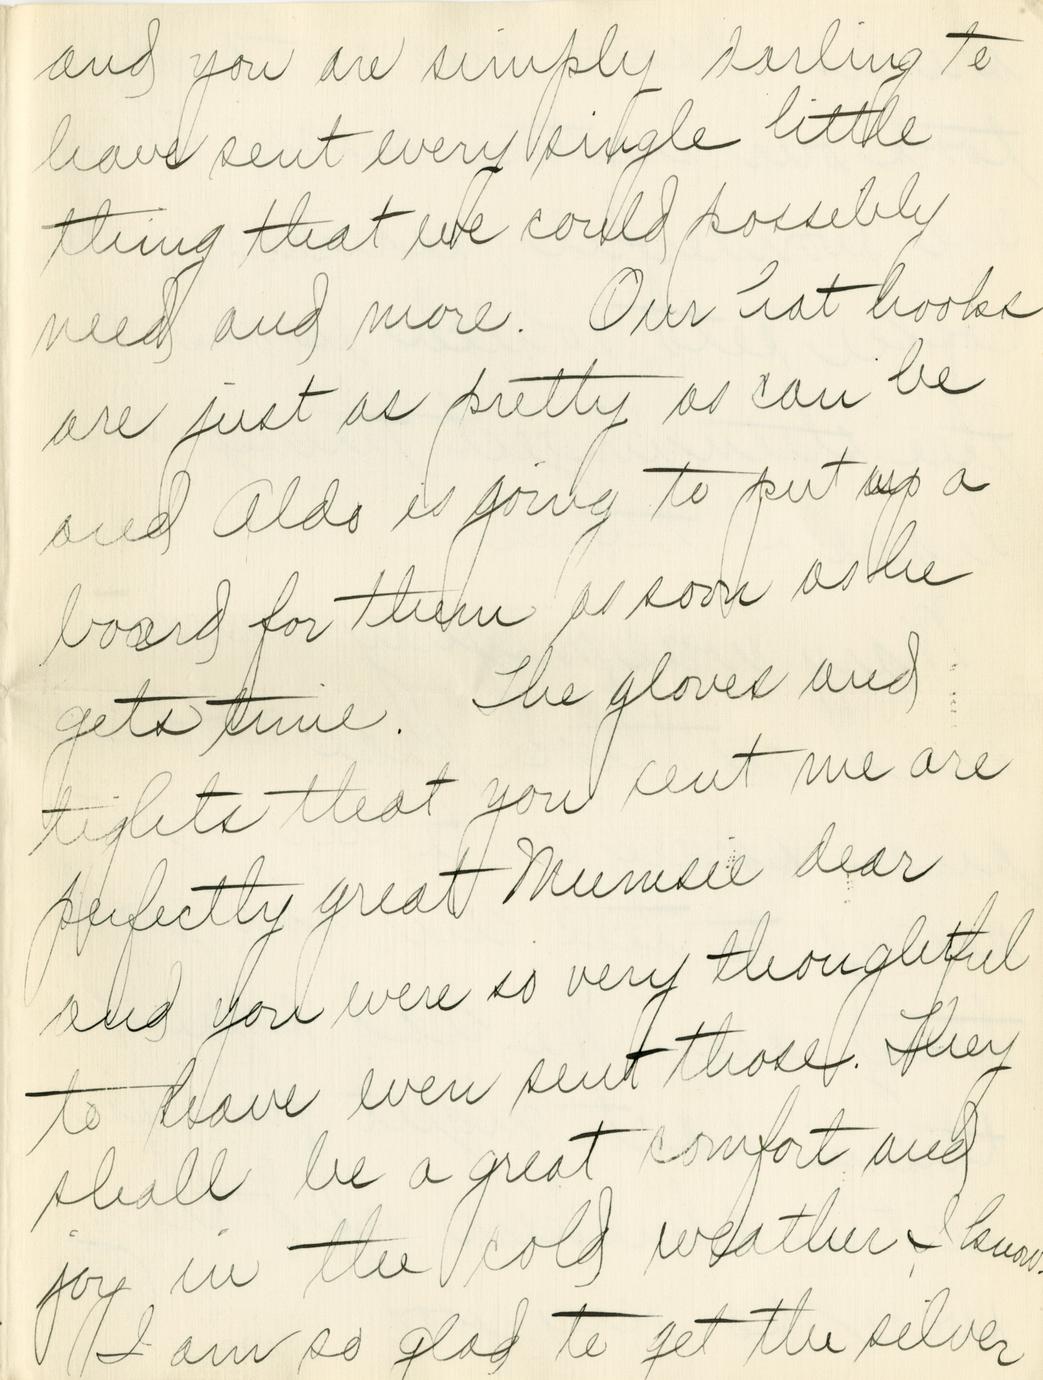 and you are simply darling to
have sent every single little
thing that we could possibly
need and more. Our hat hooks
are just as pretty as can be
and Aldo is going to put up a
board for them as soon as he
gets time. The gloves and
tights that you sent me are
perfectly great Mumsie dear
and you were so very thoughtful
to have even sent those. They
shall be a great comfort and
joy in the cold weather, I know.
I am so glad to get the silver